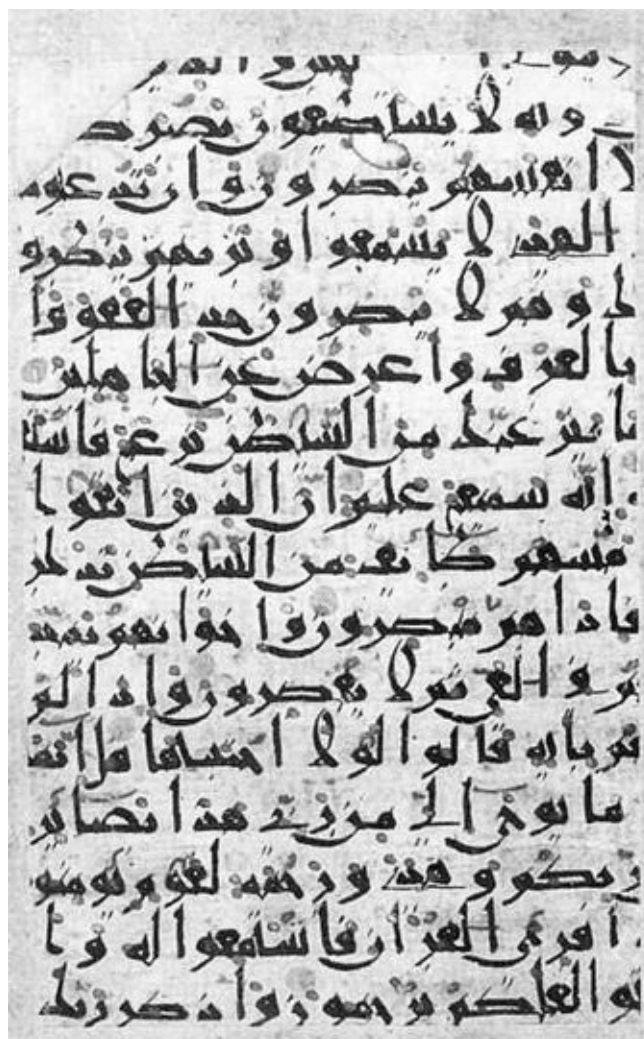 دونه لا يستطيعون نصركم
لا انفسهم ينصرون وان تدعوهم
الهدى لا يسمعوا وتريهم ينظرون
ك وهم لا يبصرون خذ العفو وا
بالعرف واعرض عن الجاهلين
ينزغنك من الشيطن نزغ فاستعذ
انه سميع عليم ان الذين اتقوا ا
مسهم طائف من الشيطن تذكر
فاذا هم مبصرون واخوانهم يمد
فى الغى ثم لا يقصرون واذا لم
تهم بايه قالوا لولا اجتبيتها قل انما
ما يوحى الى من ربى هذا بصائر
ربكم وهدى ورحمة لقوم يومنو
ا قرى القران فاستمعوا له وا
توا لعلكم ترحمون واذكر ربك